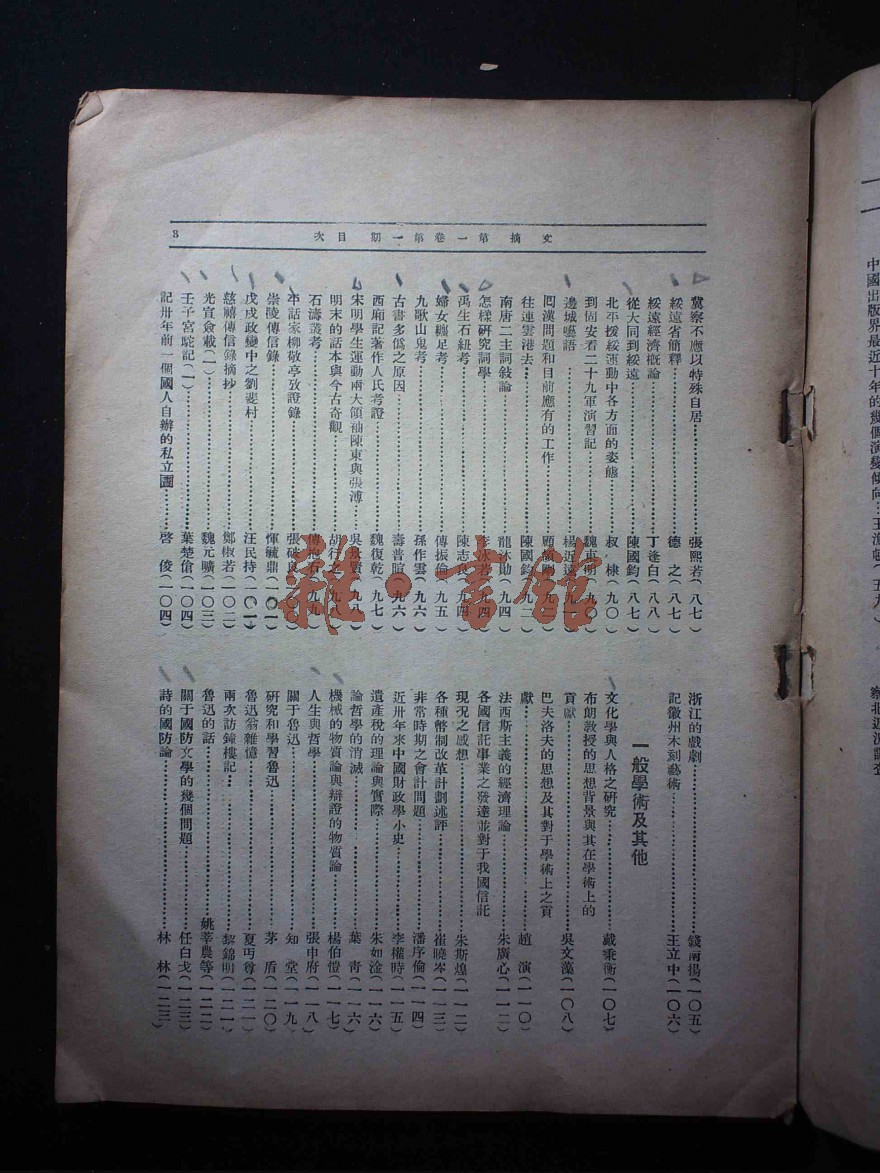 文摘第一卷第一期目次
3
冀察不應以特殊自居 張熙若(八七)
綏遠省簡釋 德之(八七)
綏遠經濟概論 丁逢白(八八)
從大同到綏遠 陳國鈞(八七)
北平援綏運動中各方面的姿態 叔棣(九〇)
到固安看二十九軍演習記 魏東明(九〇)
邊城囈語 楊近遠(九一)
回漢問題和目前應有的工作 顧頡剛(九二)
往連雲港去 陳國鈞(九二)
南唐二主詞敍論 龍沐勛(九四)
怎樣研究詞學 李冰若(九四)
禹生石紐考 陳志良(九四)
婦女纏足考 傅振倫(九五)
九歌山鬼考 孫作雲(九六)
古書多僞之原因 壽普暄(九六)
西廂記著作人氏考證 魏復乾(九七)
宋明學生運動兩大領袖陳東與張溥 吳景賢(九八)
明末的話本與今古奇觀 胡行之(九八)
石濤叢考 傅抱石(九九)
平話家柳敬亭攷證錄 張破良(一〇〇)
崇陵傳信錄 惲毓鼎(一〇一)
戊戌政變中之劉裴村 汪民持(一〇一)
慈禧傳信錄摘抄 鄭椒若(一〇二)
光宣僉載(一) 魏元曠(一〇三)
壬子宮駝記(一) 葉楚傖(一〇四)
記卅年前一個國人自辦的私立團 啓俊(一〇四)
浙江的戲劇 錢南揚(一〇五)
記徽州木刻藝術 王立中(一〇六)
一般學術及其他
文化學與人格之研究 戴秉衡(一〇七)
布朗教授的思想背景與其在學術上的
貢獻 吳文藻(一〇八)
巴夫洛夫的思想及其對于學術上之貢
獻 趙演(一一〇)
法西斯主義的經濟理論 朱廣心(一一二)
各國信託事業之發達並對于我國信託
現況之感想 朱斯煌(一一二)
各種幣制改革計劃述評 崔曉岑(一一三)
非常時期之會計問題 潘序倫(一一四)
近卅年來中國財政學小史 李權時(一一五)
遺產稅的理論與實際 朱如淦(一一六)
論哲學的消滅 葉青(一一六)
機械的物質論與辯證的物質論 楊伯愷(一一七)
人生與哲學 張申府(一一八)
關于魯迅 知堂(一一九)
研究和學習魯迅 茅盾(一二〇)
魯迅翁雜憶 夏丏尊(一二一)
兩次訪鐘樓記 黎錦明(一二一)
魯迅的話 姚莘農等(一二二)
關于國防文學的幾個問題 任白戈(一二三)
詩的國防論 林林(一二三)
中國出版界最近十年的幾個演變傾向
雜·書館